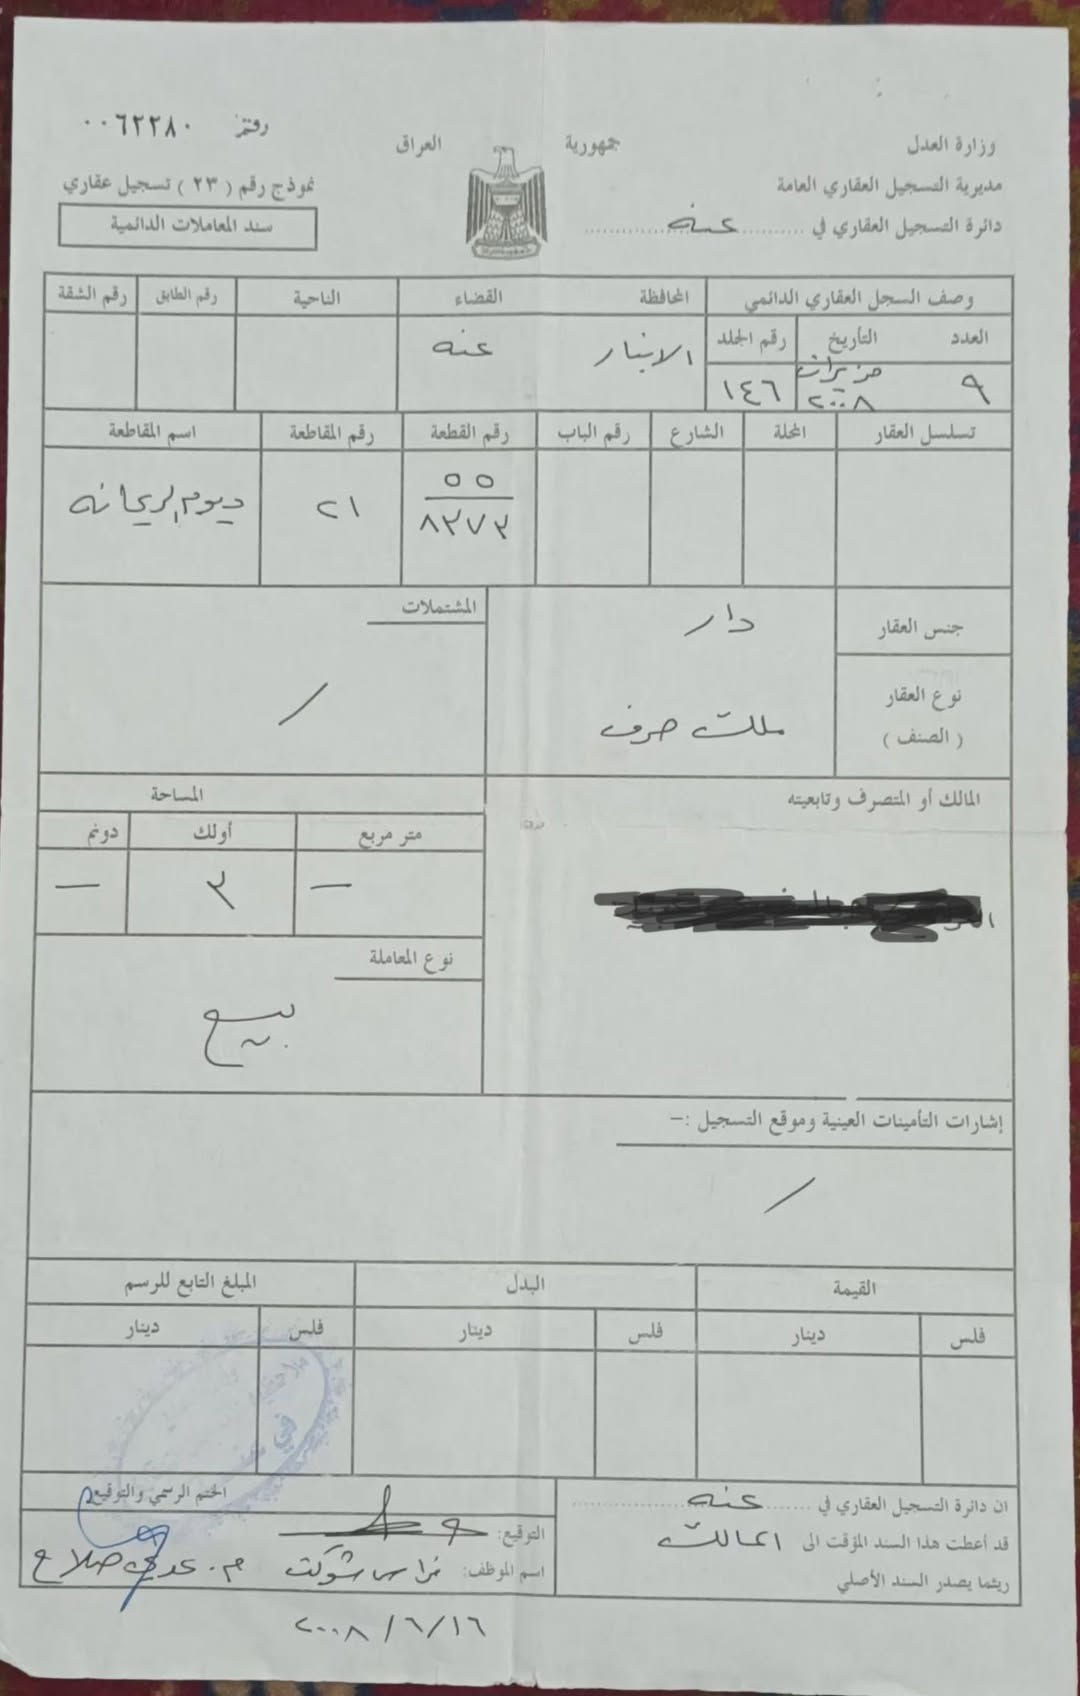 وزارة العدل
جمهورية العراق
رقم ٠٠٦٢٢٨٠
مديرية التسجيل العقاري العامة
نموذج رقم ( ٢٣ ) تسجيل عقاري
دائرة التسجيل العقاري في عنه
سند المعاملات الدائمية
وصف السجل العقاري الدائمي
المحافظة
القضاء
الناحية
رقم الطابق
رقم الشقة
العدد
التأريخ
رقم الجلد
الانبار
عنه
٩
حزيران ٢٠٠٨
١٤٦
تسلسل العقار
المحلة
الشارع
رقم الباب
رقم القطعة
رقم المقاطعة
اسم المقاطعة
٥٥
٨٣٧٣
٢١
ديوم الريحانه
جنس العقار
دار
المشتملات
/
نوع العقار
( الصنف )
ملك صرف
المالك أو المتصرف وتابعيته
المساحة
متر مربع
أولك
دونم
—
٣
—
نوع المعاملة
بيع
إشارات التأمينات العينية وموقع التسجيل :-
/
القيمة
البدل
المبلغ التابع للرسم
فلس
دينار
فلس
دينار
فلس
دينار
ان دائرة التسجيل العقاري في عنه
قد أعطت هذا السند المؤقت الى المالك
ريثما يصدر السند الأصلي
الختم الرسمي والتوقيع
التوقيع:
اسم الموظف: فراس شوكت
م. عدي صلاح
٢٠٠٨/٦/١٦